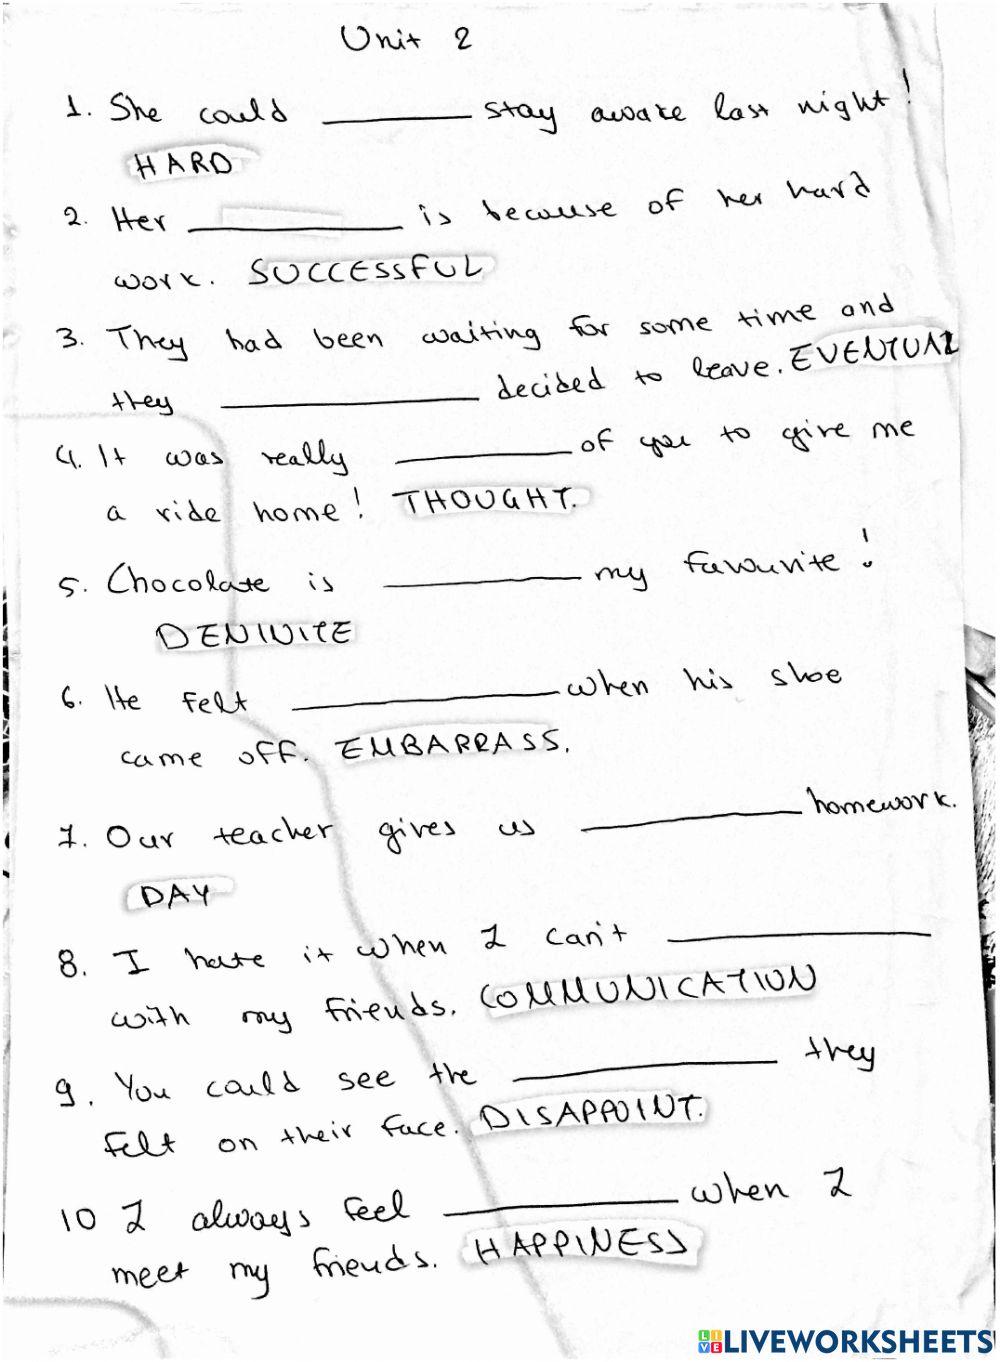 Unit 2
1. She could ________ stay awake last night!
HARD
2. Her ________ is because of her hard
work. SUCCESSFUL
3. They had been waiting for some time and
they ________ decided to leave. EVENTUAL
4. It was really ________ of you to give me
a ride home! THOUGHT.
5. Chocolate is ________ my favourite!
DENINITE
6. He felt ________ when his shoe
came off. EMBARRASS.
7. Our teacher gives us ________ homework.
DAY
8. I hate it when I can't ________
with my friends. COMMUNICATION
9. You could see the ________ they
felt on their face. DISAPPOINT.
10 I always feel ________ when I
meet my friends. HAPPINESS
LIVEWORKSHEETS